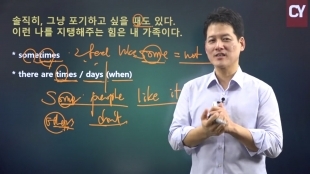 CY
솔직히, 그냥 포기하고 싶을 때도 있다.
이런 나를 지탱해주는 힘은 내 가족이다.
* sometimes = I feel like some = not
* there are times / days (when)
Some people like it
others don't